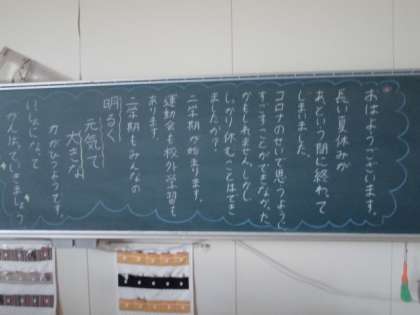 おはようございます。
長い夏休みが
あという間に終わって
しまいました。
コロナのせいで思うように
すごすことができなかった
かもしれません。しかし
しっかり休むことはでき
ましたか？
二学期が始まります。
運動会も校外学習も
あります。
二学期もみんなの
明るく
元気で
大きな
力がひつようです。
いしょになって
がんばっていきましょう